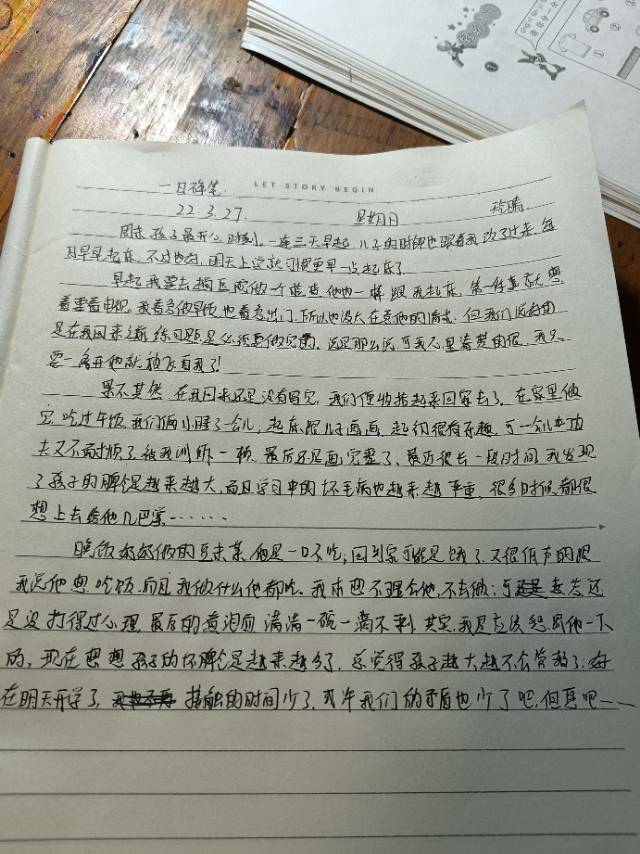 一日随笔.
LET STORY BEGIN
22.3.27. 星期日
周末孩子最开心时刻.一连三天早起,儿子的时钟也跟着我改了过来,每
日早早起床,不过也好,明天上学就习惯更早一点起床了.
早起我要去 他 一样跟我起床.第一件事就想
看看电视,我着急做早饭也着急出门,所以也没太在意他的情绪.但我们
是在我回来之前练习题是必须要做完的. 可我心里清楚的很,我只
要一离开他就放飞自我了!
果不其然,在我回来还是没有写完,我们便收拾起来回家去了,在家里做
完.吃过午饭我们俩小睡了一会儿,起床跟儿子画画,起初很有乐趣,可一会儿功
夫又不耐烦了.被我训斥一顿.最后还是画完整了,最近很长一段时间,我发现
了孩子的脾气是越来越大,而且学习中的坏毛病也越来越严重,很多时候都很
想上去给他几巴掌······
晚饭 做的豆末菜,他是一口不吃,回到家可能是饿了,又很低声的跟
我说他想吃饭,而且我做什么他都吃.我本想不理会他,不去做;可 还
是没打得过心理,最后的 满满一碗一滴不剩,其实我是应该惩罚他一下
的,现在想想孩子的坏脾气是越来越多了,总觉得孩子越大越不会管教了.好
在明天开学了, 接触的时间少了,或许我们的矛盾也少了吧,但愿吧——